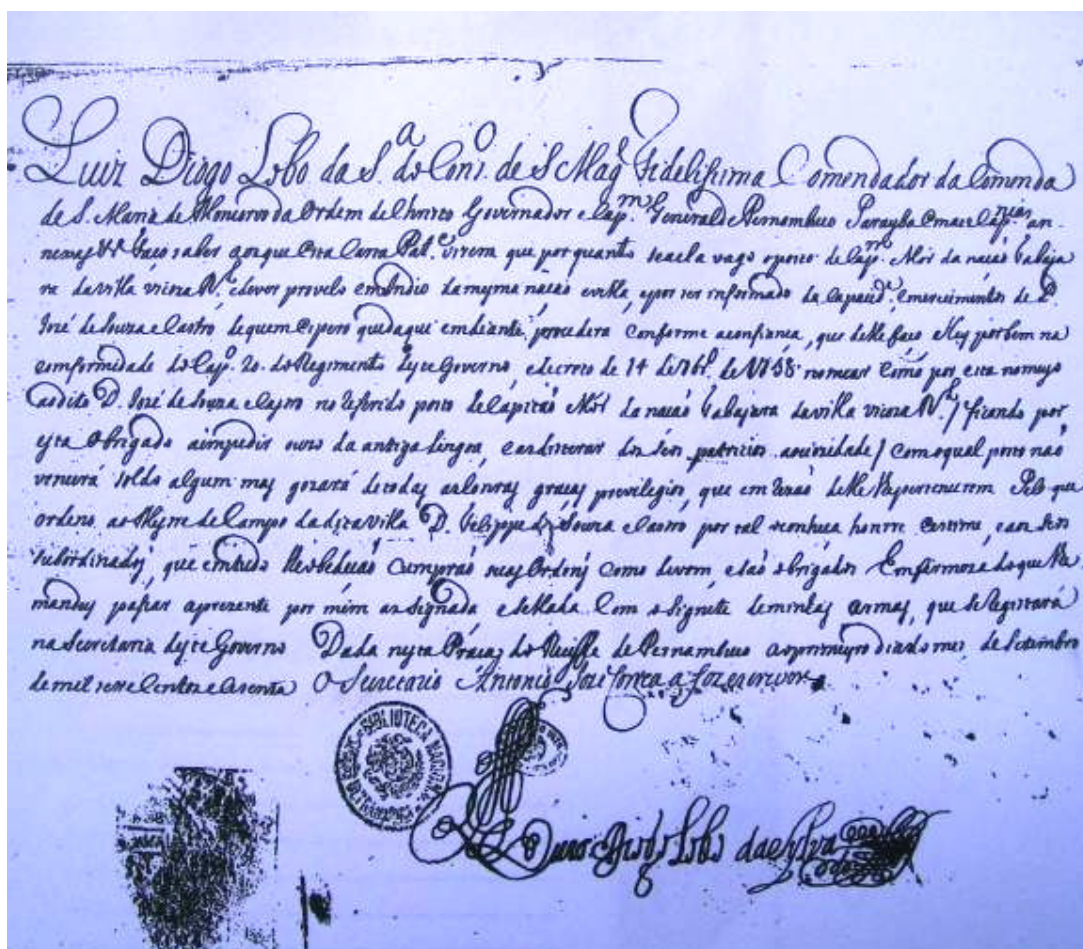 Luiz Diogo Lobo da S.ª do Con.º de S Mag.e Fidelissima Comendador da Comenda
de S. Maria de da Ordem de Christo Governador e Cap.m General de Pernambuco Parayba e mais Cap.nias an-
nexas &ª Faço saber aos que esta Carta Pat.e virem que por quanto se acha vago o posto de Cap.m Mór da nação Tabaja
ra da villa viçoza R.l e devo provelo em Indio da mesma nação e villa, e por ser informado da capacid.e e merecimentos de D.
José de Souza e Castro de quem espero que daqui em diante procederá conforme a confiança, que delle faço Hey por bem na
comformidade do Cap.º 20. do Regimento deste Governo, e decreto de 14 de de 1758 nomear Como por esta nomeyo
ao dito D. José de Souza e Castro no referido posto de Capitão Mór da nação Tabajara da villa viçoza R.l / ficando por
esta obrigado a impedir o uzo da antiga lingoa, e aos seus patricios a ociozidade / com o qual posto não
vencerá soldo algum mas gozará de todas as honras graças previlegios, que em razão delle lhe pertencerem Pelo que
ordeno ao Mestre de Campo da dita villa D. Felippe de Souza e Castro por tal o conheça honrre e estime, e aos seus
subordinados, que em tudo lhe obedeção e cumprão suas Ordens como devem, e são obrigados Em firmeza do que lhe
mandey passar a prezente por mim assignada, e sellada Com o signete de minhas armas, que se registará
na Secretaria deste Governo Dada nesta Praça do Reciffe de Pernambuco aos primeyro dia do mes de Setembro
de mil sete Centos e sesenta O Secretario Antonio José Correa a fez escrever
BIBLIOTECA NACIONAL
Luiz Diogo Lobo da Sylva